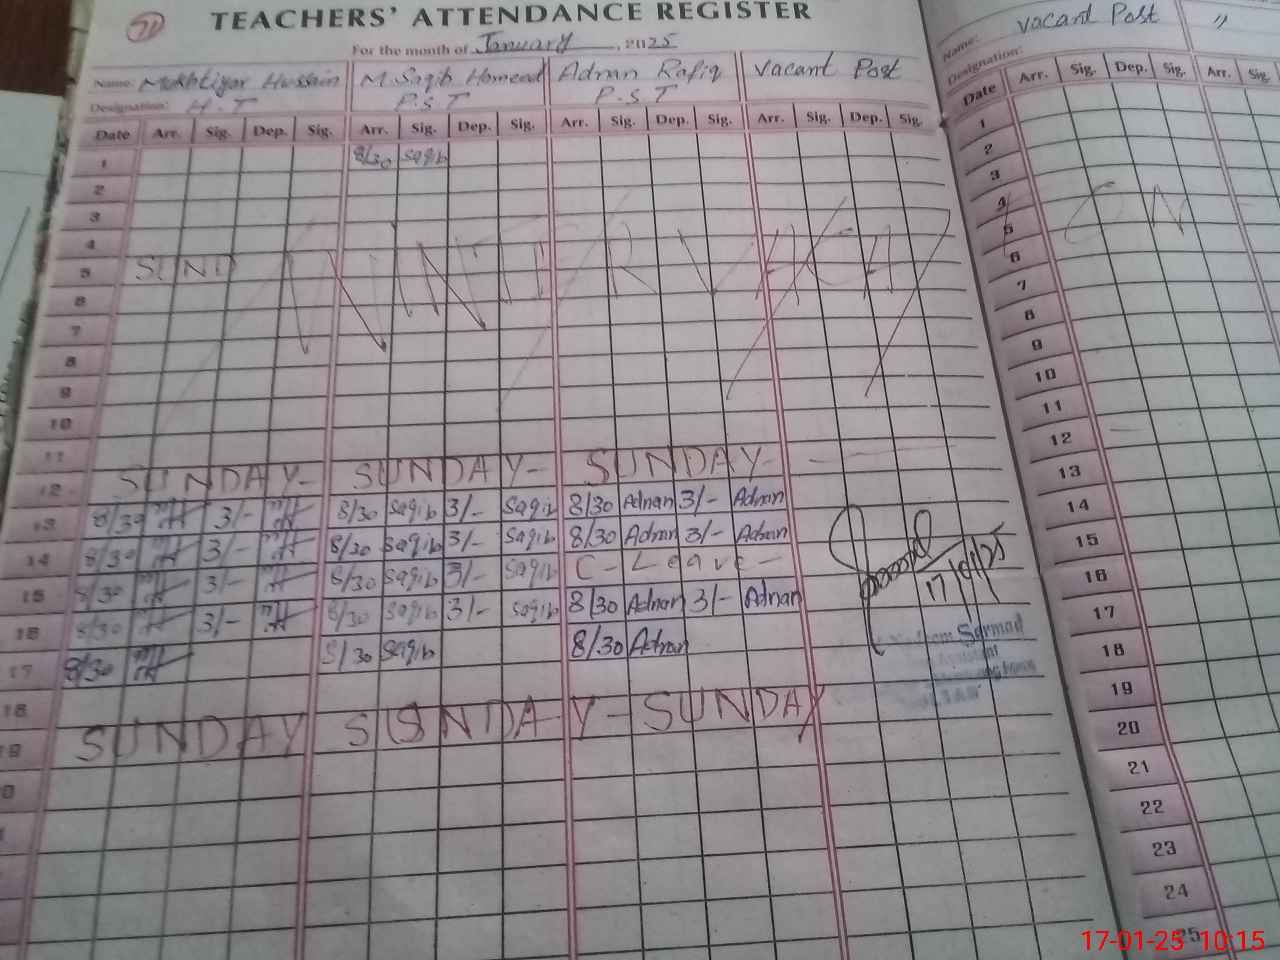 71
TEACHERS' ATTENDANCE REGISTER
For the month of January, 2025
Name: Mukhtiyar Hussain M. Saqib Hameed Adnan Rafiq Vacant Post
Designation: H.T P.S.T P.S.T
Date Arr. Sig. Dep. Sig. Arr. Sig. Dep. Sig. Arr. Sig. Dep. Sig. Arr. Sig. Dep. Sig.
1 8/30 Saqib
2
3
4
5 SUND
WINTER VACA
6
7
8
9
10
11
12 SUNDAY- SUNDAY- SUNDAY-
13 8/30 3/- 8/30 Saqib 3/- Saqib 8/30 Adnan 3/- Adnan
14 8/30 3/- 8/30 Saqib 3/- Saqib 8/30 Adnan 3/- Adnan
15 8/30 3/- 8/30 Saqib 3/- Saqib C-Leave-
16 8/30 3/- 8/30 Saqib 3/- Saqib 8/30 Adnan 3/- Adnan
17 8/30 8/30 Saqib 8/30 Adnan
18
19 SUNDAY SUNDAY-SUNDAY
17/01/25
Sarmad
Name: Vacant Post "
Designation:
Date Arr. Sig. Dep. Sig. Arr. Sig.
1
2
3
4
5
6
7
8
9
10
11
12
13
14
15
16
17
18
19
20
21
22
23
24
25
17-01-25 10:15